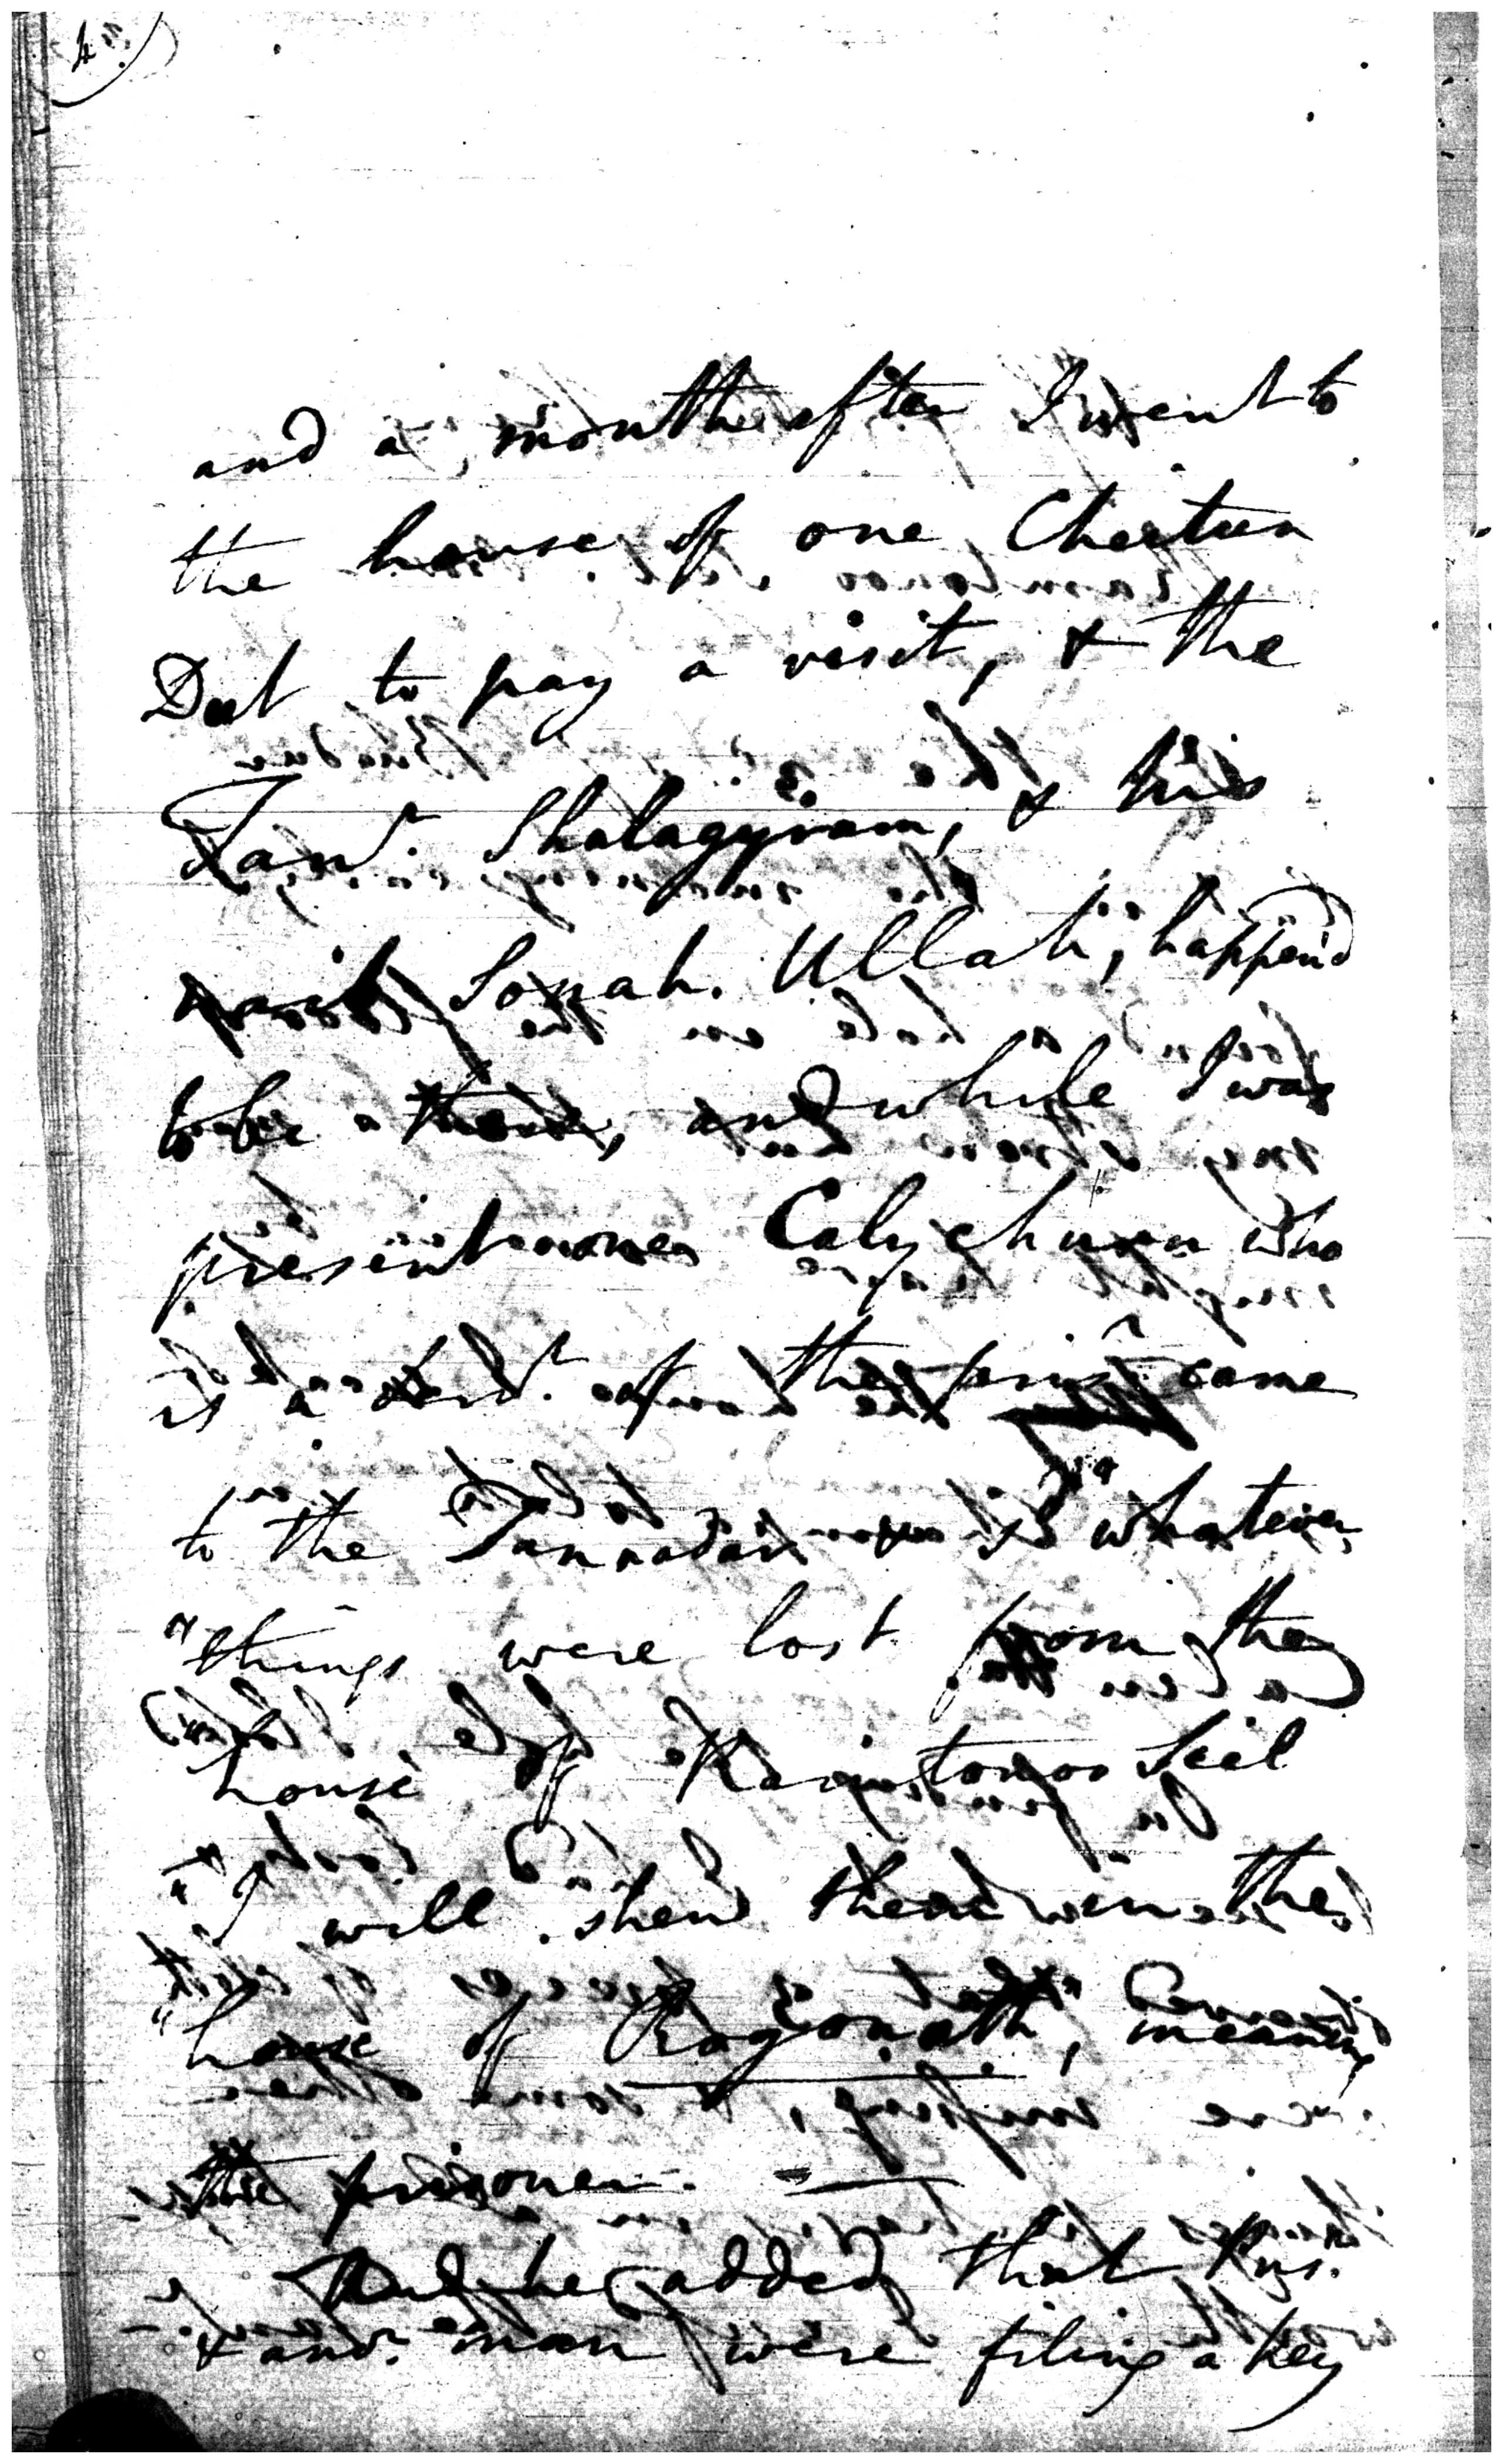 4
and a month after I went to
the house of one Cheetun
Dut to pay a visit, & the
Tanr. Shalagyram, & his
naib Sonah. Ullah, happend
to be there, and while I was
present one Calychurn who
is a servt. of the prisr. came
to the Tannadar & sd "whatever
"things were lost from the
house of Ramtonoo Seel
"I will shew them in the
"house of Rogonath", meaning
the prisoner. —
And he added that Prs.
& anr. man were filing a key